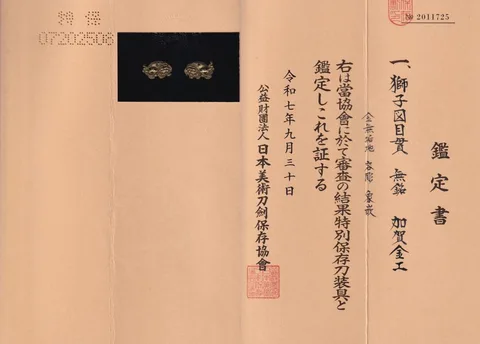 № 2011725
鑑定書
一、獅子図目貫 無銘 加賀金工
金無垢地 容彫 象嵌
右は當協會に於て審査の結果特別保存刀装具と
鑑定しこれを証する
令和七年九月三十日
公益財團法人 日本美術刀剣保存協會
特保
07202508